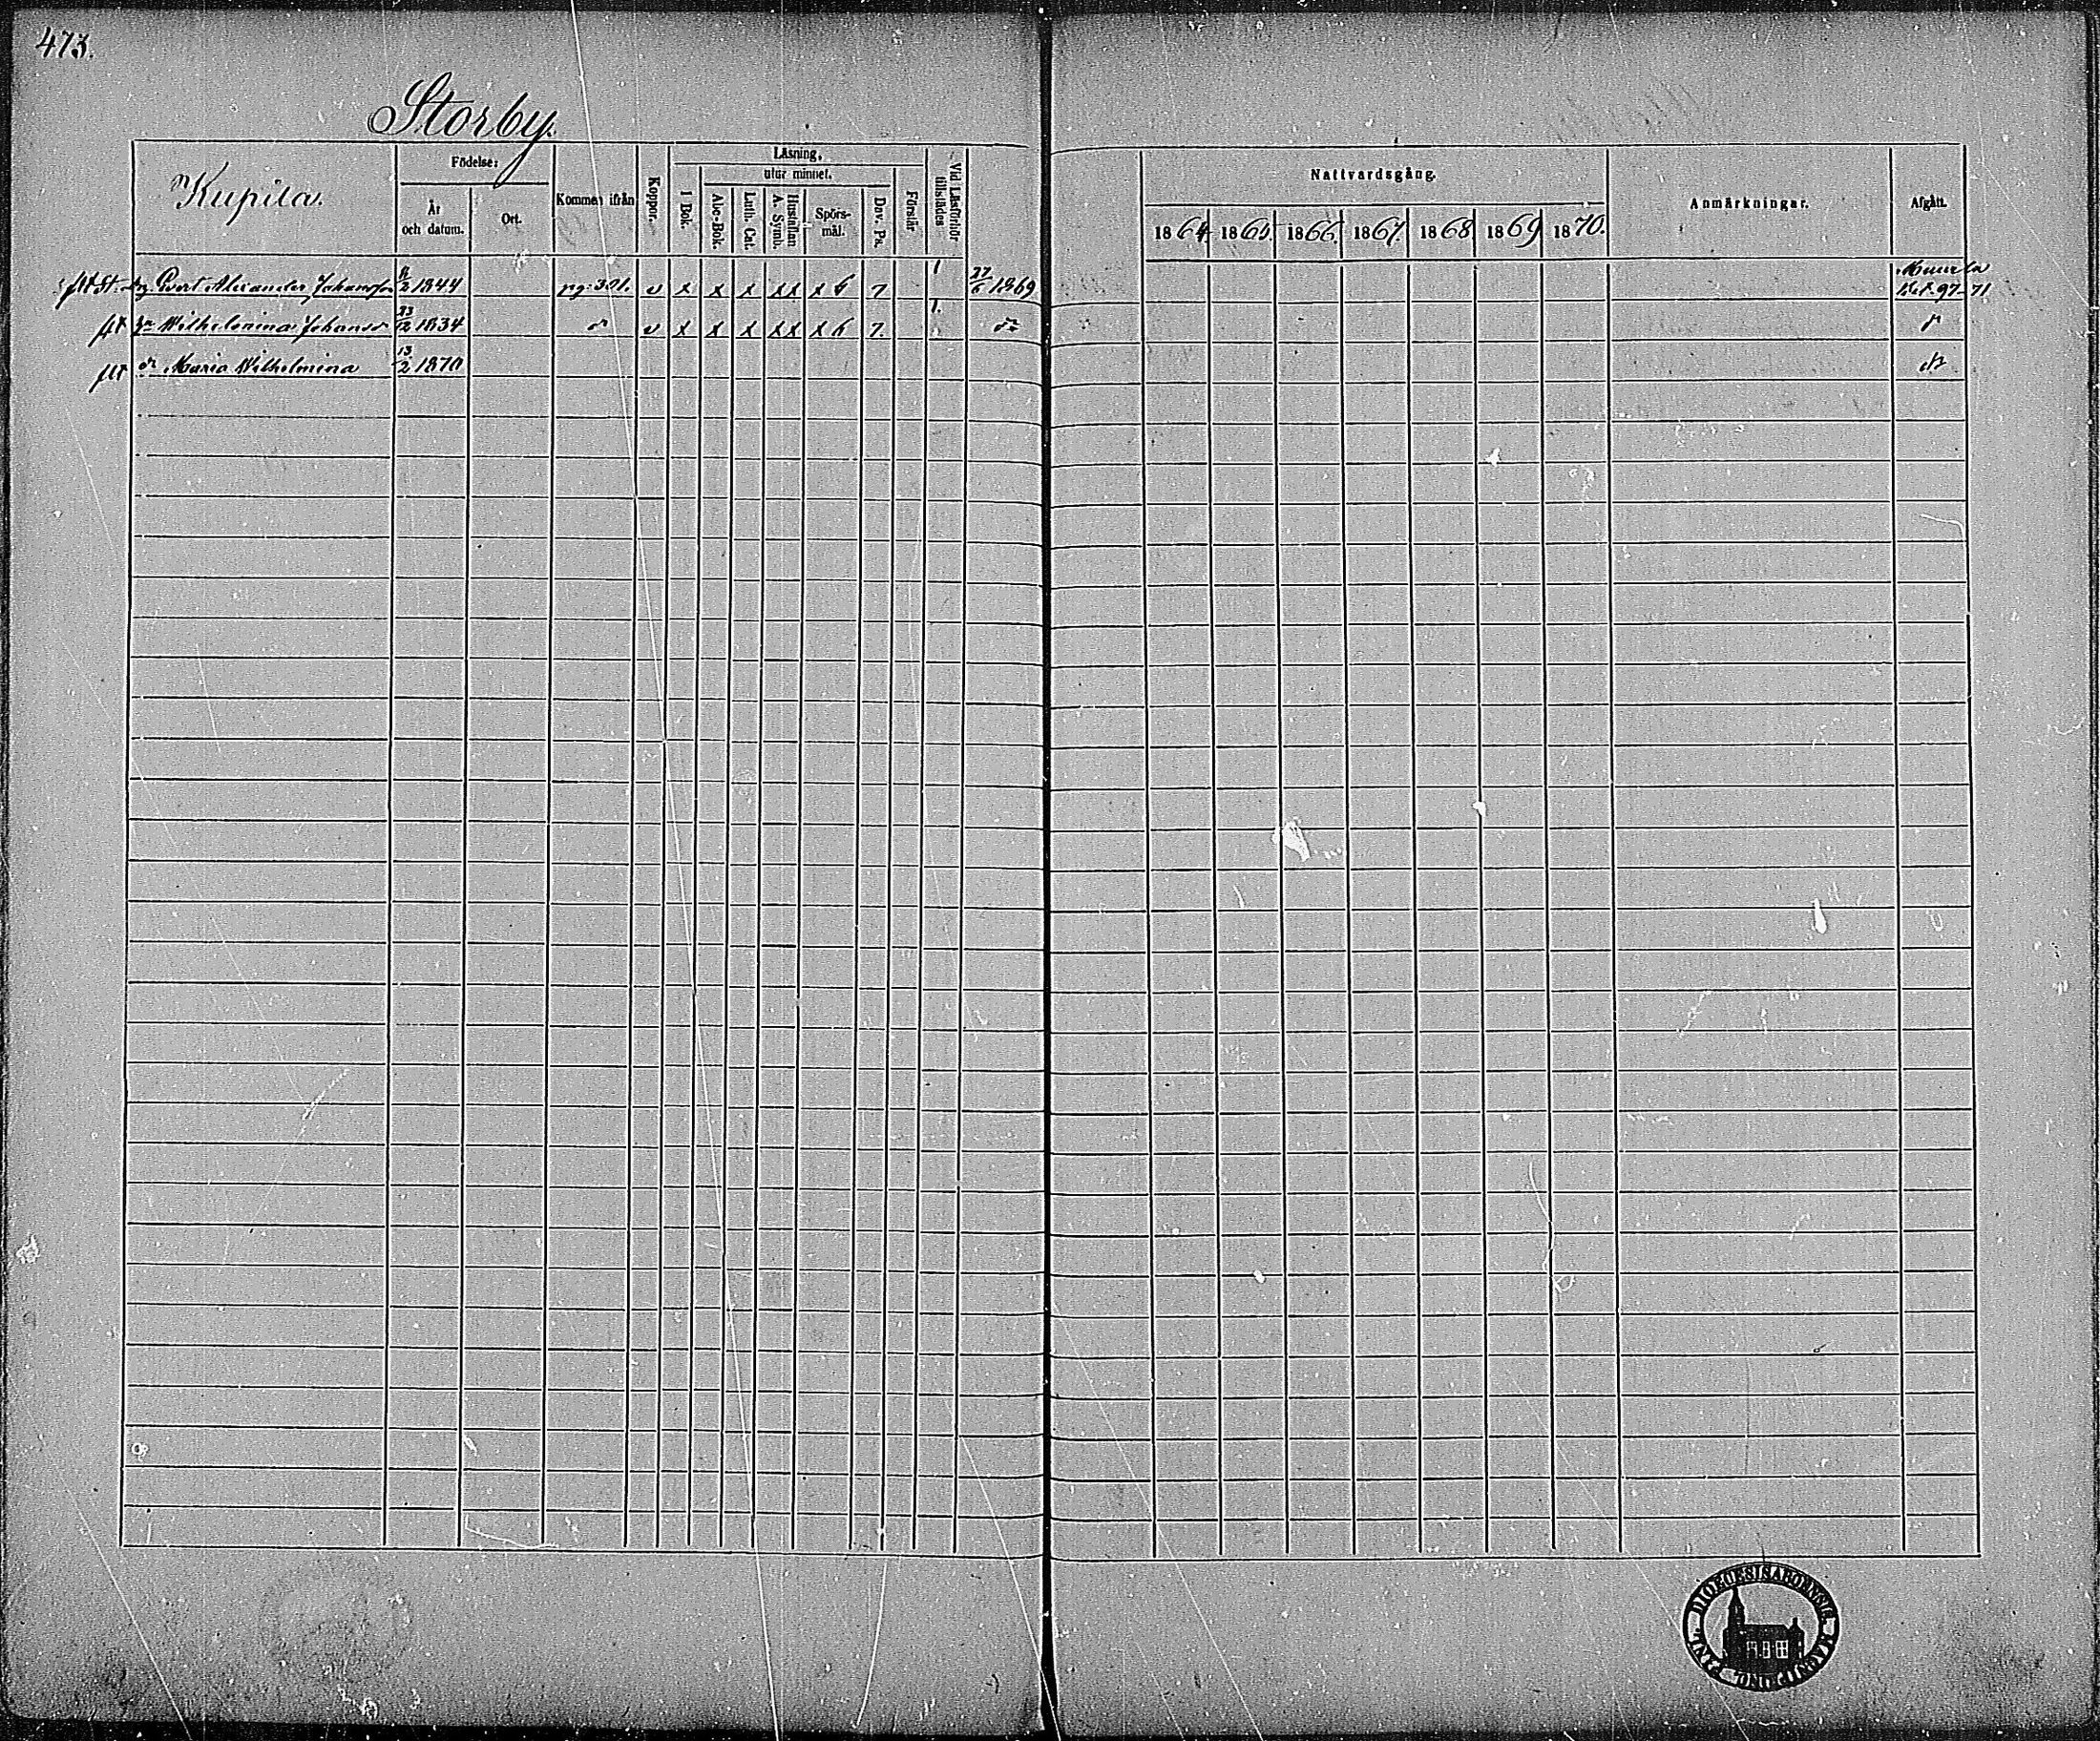 473.
Storby.
Kupila.
Födelse:
År och datum.
Ort.
Kommen ifrån
Koppor.
Läsning,
I Bok.
utur minnet.
Abc-Bok.
Luth. Cat.
Hustaflan A. Symb.
Spörsmål.
Dav. Ps.
Förstår
Vid Läsförhör tillstädes
Nattvardsgång.
1864. 1865. 1866. 1867. 1868 1869 1870.
Anmärkningar.
Afgått.
Evert Alexander Johansson 1844 pg. 301. v x x x xx x 6 7 1 27/6 1869 Muurla
Bet. 97-71
flt Wilhelmina Johansd 23/12 1834 v x x x xx x 6 7. 1.
flt Maria Wilhelmina 13/2 1870
DIOECESIS ABOENSIS MAGNI DUC. FINL.